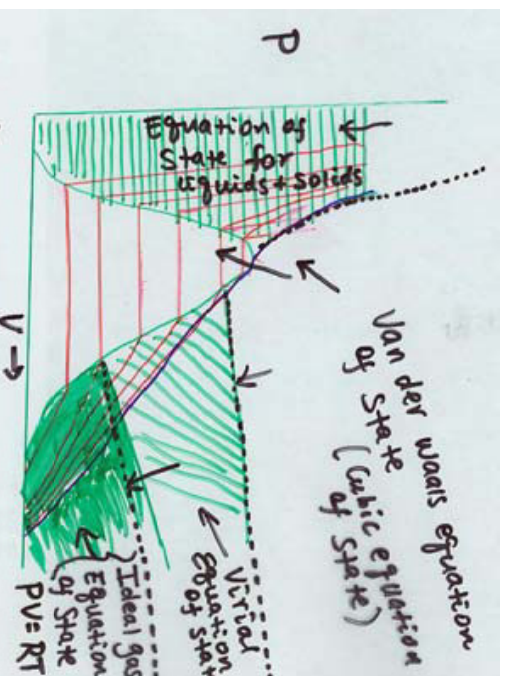 P
Equation of
State for
Liquids + Solids
Van der Waals equation
of State
(Cubic equation
of State)
Virial
Equation
of Stat
Ideal gas
Equation
of State
PV = RT
V →